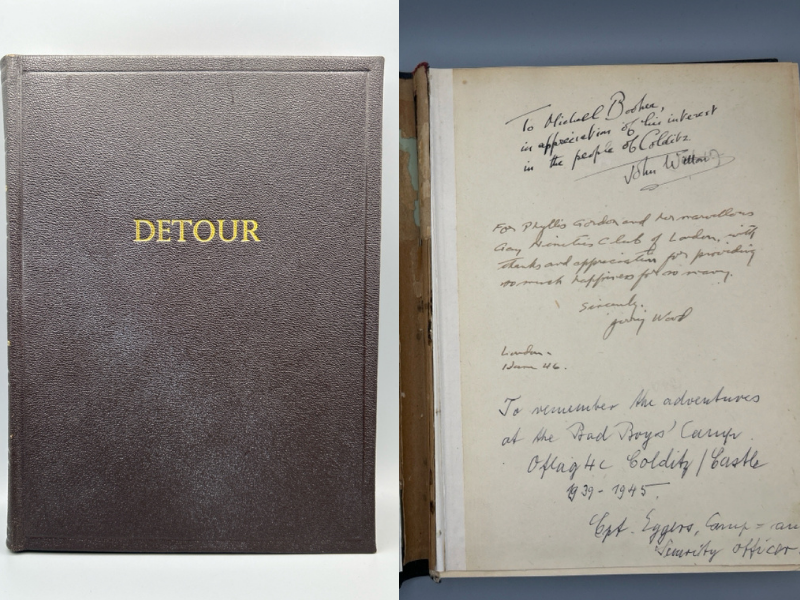 DETOUR
To Michael Booker,
in appreciation of his interest
in the people of Colditz
John
For Phyllis Gordon and her marvellous
Gay Nineties Club of London, with
thanks and appreciation for providing
so much happiness for so many.
Sincerely.
Jerry Wood
London -
June 46.
To remember the adventures
at the Bad Boys' Camp
Oflag 4c Colditz / Castle
1939 - 1945.
Cpt. Eggers, Camp = an
Security officer.